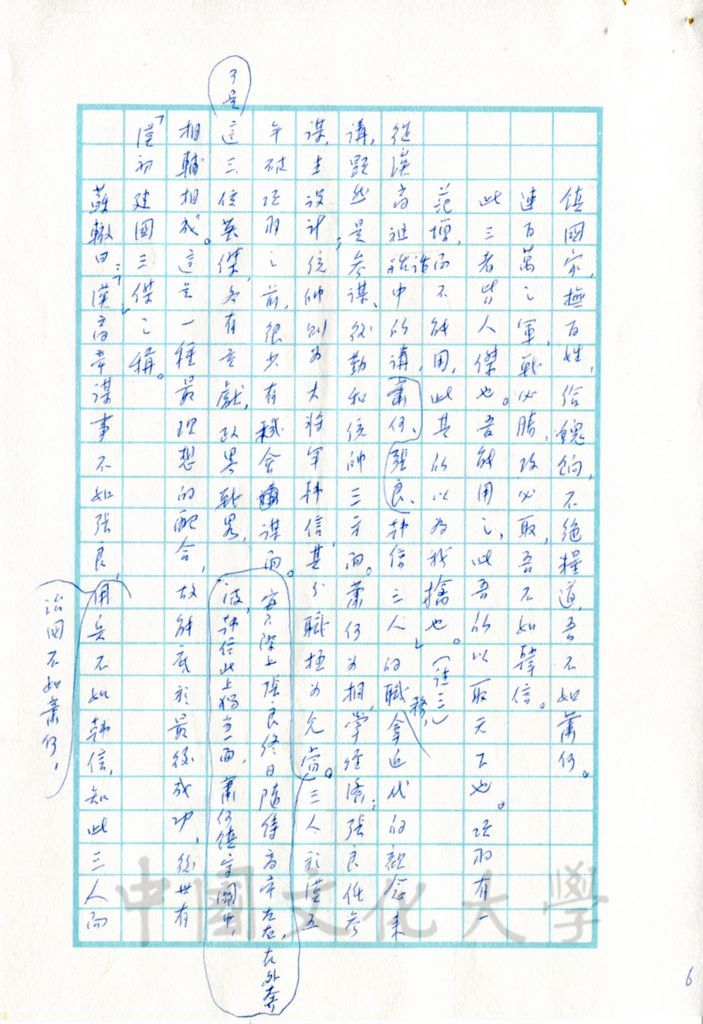 鎮國家,撫百姓,給餽餉,不絕糧道,吾不如蕭何。
連百萬之軍,戰必勝,攻必取,吾不如韓信。
此三者皆人傑也。吾能用之,此吾所以取天下也。項羽有一
范增,而不能用,此其所以為我擒也。」(註三)
從漢高祖談話中所講,蕭何、張良、韓信三人的職務,拿近代的觀念來
講,顯然是參謀、後勤和統帥三方面。蕭何為相,掌經濟;張良任參
謀,主設計;統帥則為大將軍韓信,其分職極為允當。三人於漢五
年破項羽之前,很少有機會謀面。 張良終日隨侍高帝左右,在外奔
波,韓信北上獨當一面,蕭何鎮守關中,
於是這三位英傑,各有貢獻,
相輔相成。這是一種最理想的配合,故能底於最後成功,後世有
「漢初建國三傑」之稱。
蘇轍曰:「漢高帝謀事不如張良,用兵不如韓信,治國不如蕭何,知此三人而
6
中國文化大學